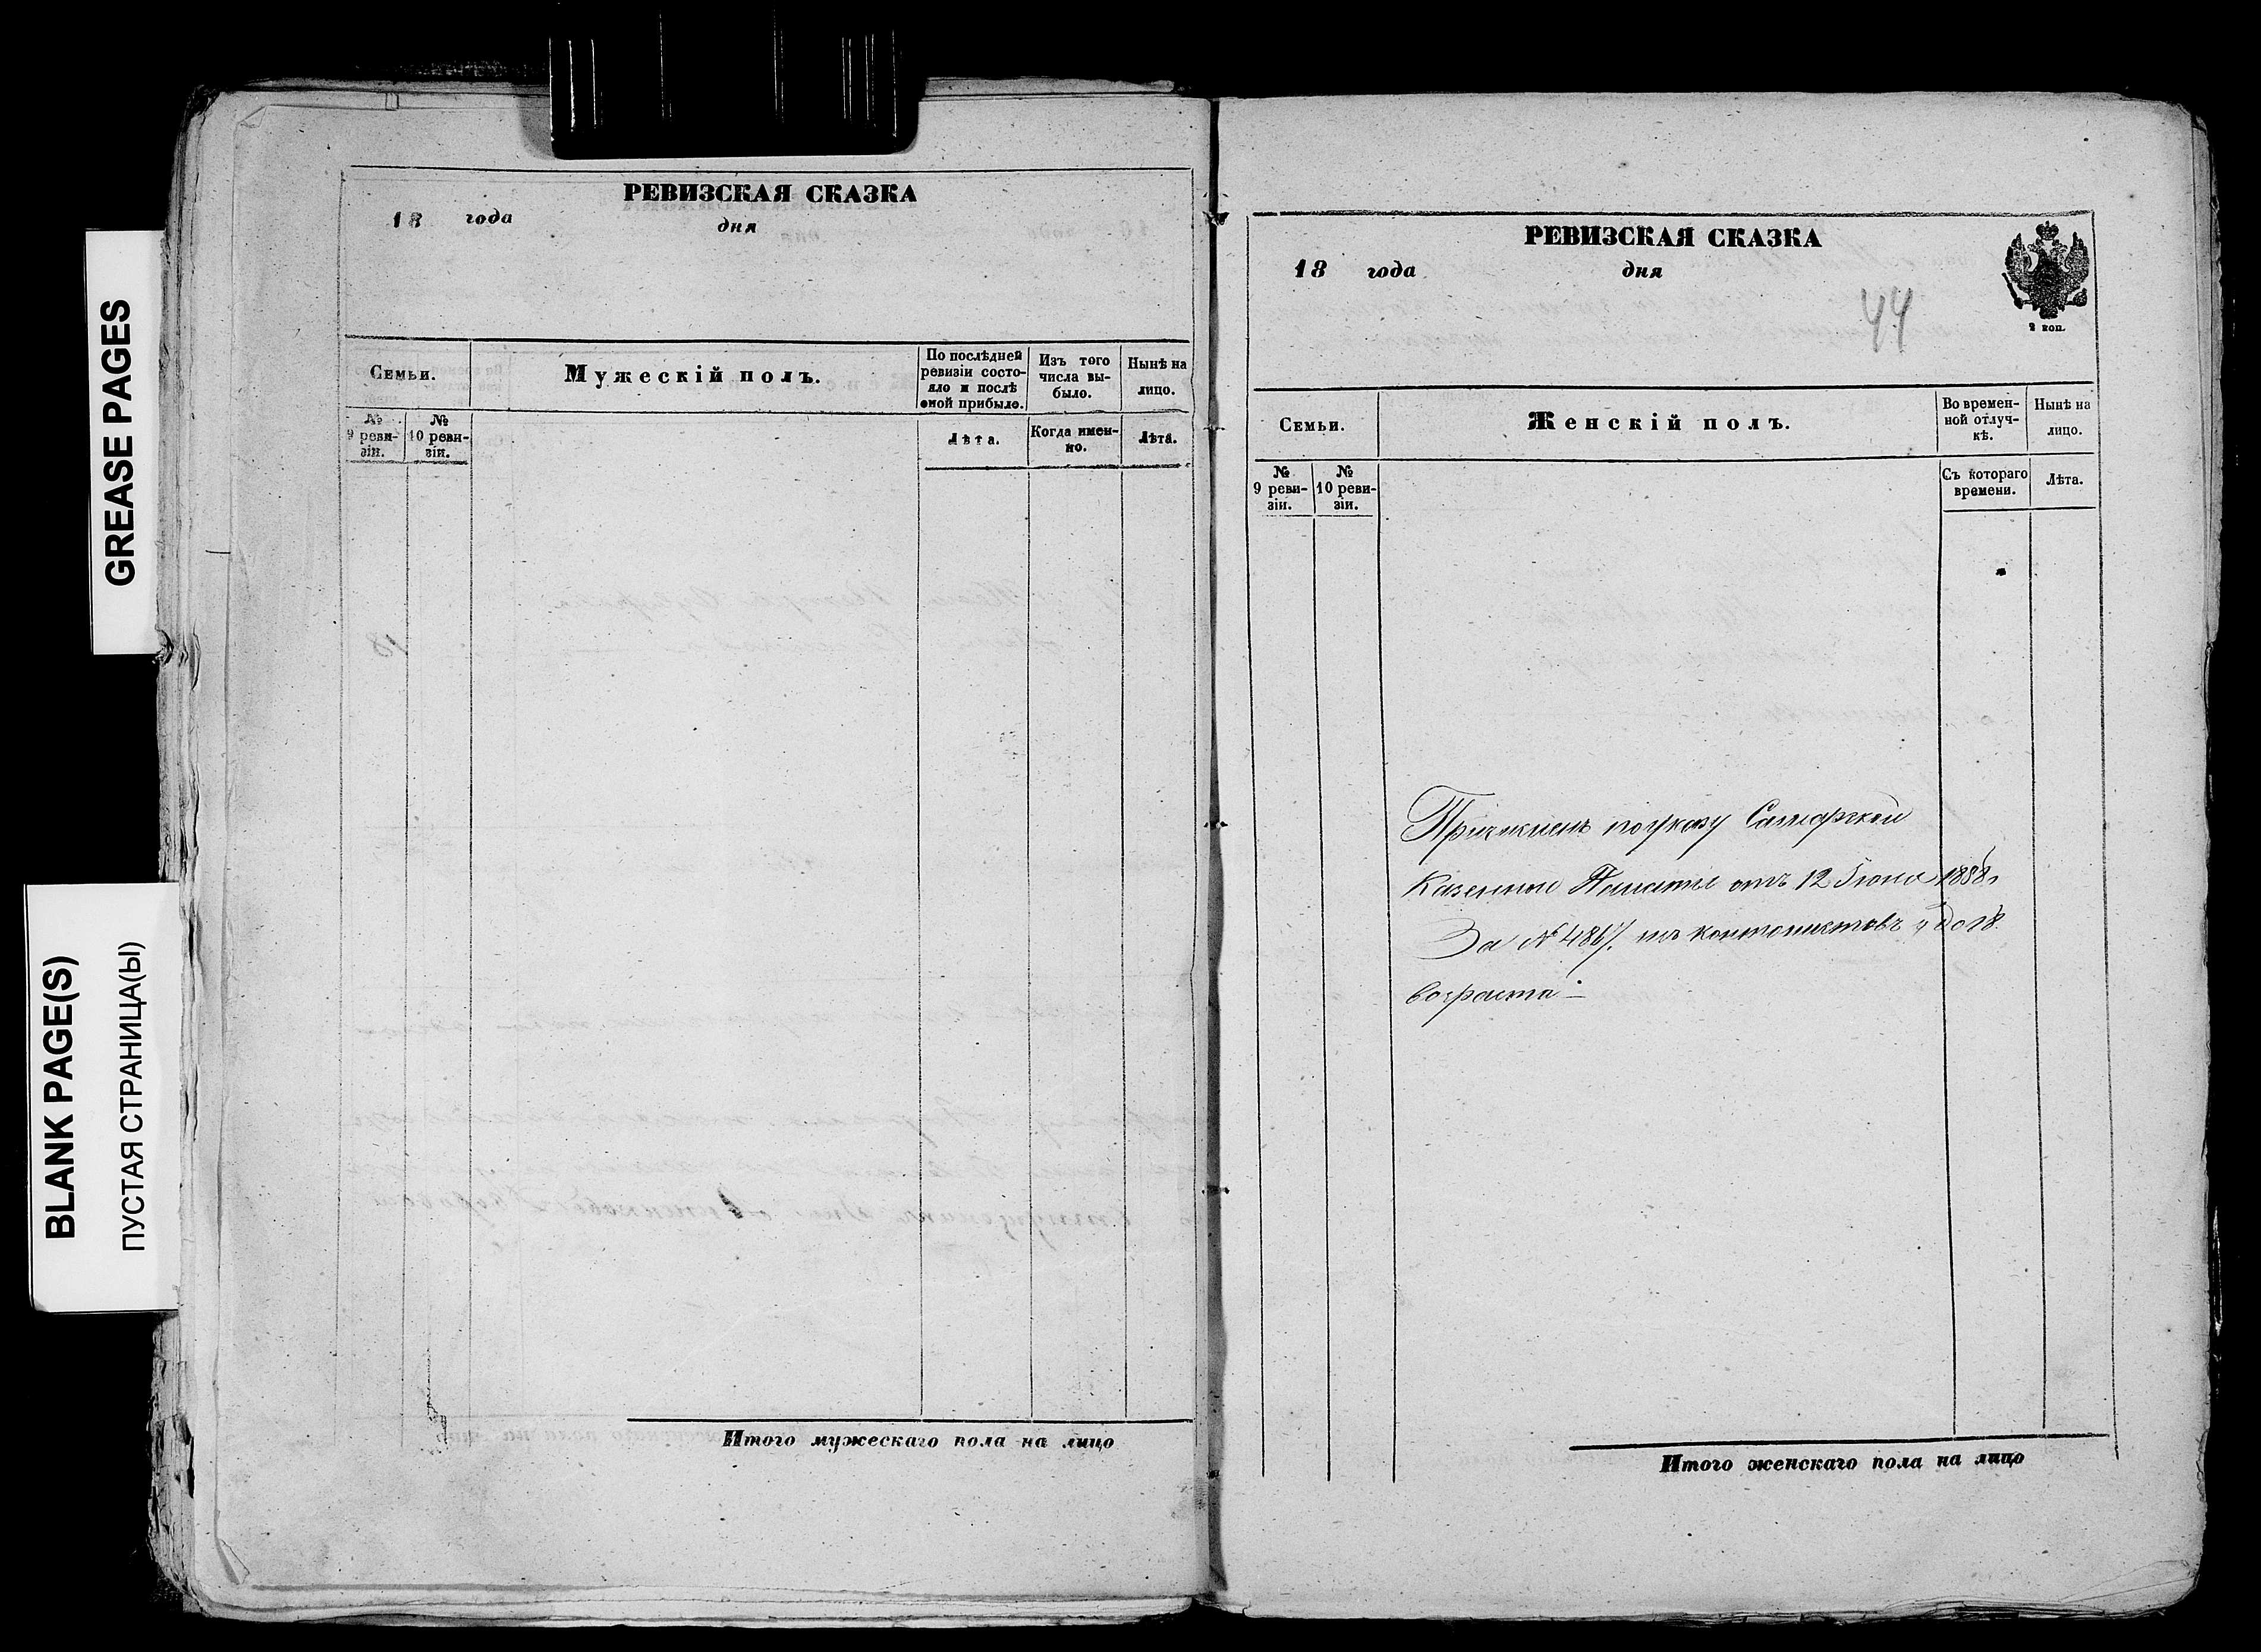 GREASE PAGES
BLANK PAGE(S)
ПУСТАЯ СТРАНИЦА(Ы)
РЕВИЗСКАЯ СКАЗКА
18 года дня
Семьи.
Мужескій полъ.
По послѣдней ревизіи состояло и послѣ оной прибыло.
Изъ того числа выбыло.
Нынѣ на лицо.
№ 9 ревизіи.
№ 10 ревизіи.
Лѣта.
Когда именно.
Лѣта.
Итого мужескаго пола на лицо
РЕВИЗСКАЯ СКАЗКА
18 года дня
44
2 коп.
Семьи.
Женскій полъ.
Во временной отлучкѣ.
Нынѣ на лицо.
№ 9 ревизіи.
№ 10 ревизіи.
Съ котораго времени.
Лѣта.
Причисленъ по указу Самарской
Казенной Палаты отъ 12 Іюня 1858.
За № 4867. изъ кантонистовъ
возраста —
Итого женскаго пола на лицо